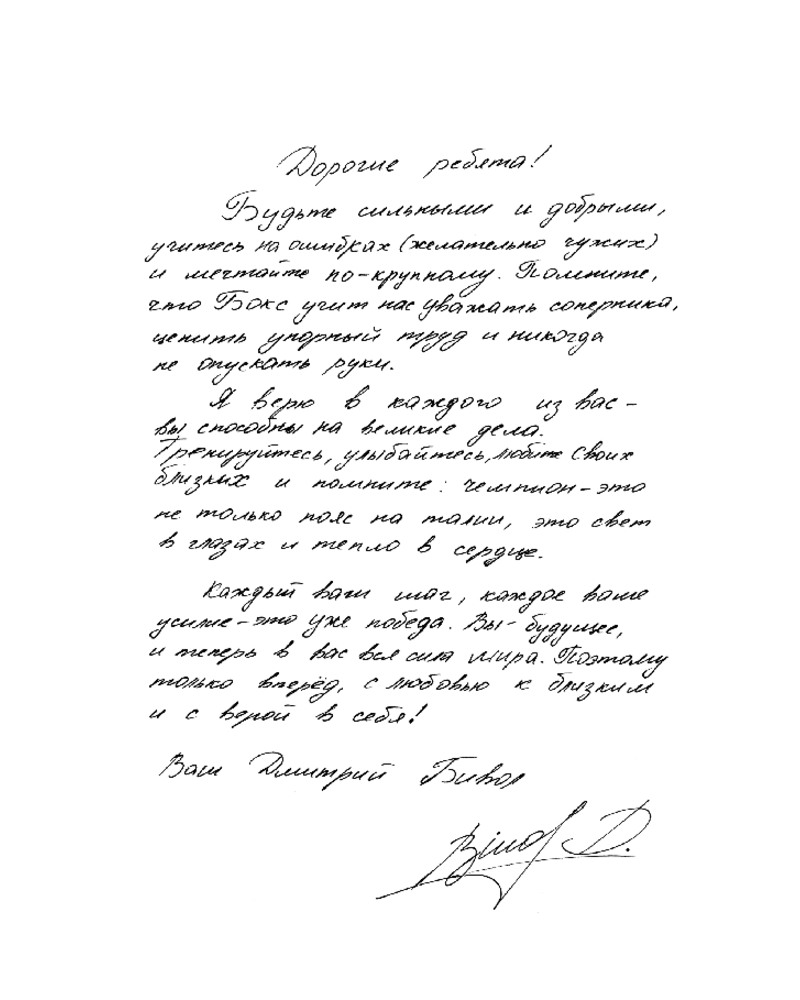 Дорогие ребята!
Будьте сильными и добрыми,
учитесь на ошибках (желательно чужих)
и мечтайте по-крупному. Помните,
что Бокс учит нас уважать соперника,
ценить упорный труд и никогда
не опускать руки.
Я верю в каждого из вас -
вы способны на великие дела.
Тренируйтесь, улыбайтесь, любите своих
близких и помните: чемпион - это
не только пояс на талии, это свет
в глазах и тепло в сердце.
Каждый ваш шаг, каждое ваше
усилие - это уже победа. Вы - будущее,
и теперь в вас вся сила мира. Поэтому
только вперёд, с любовью к близким
и с верой в себя!
Ваш Дмитрий Бивол
Bivol D.